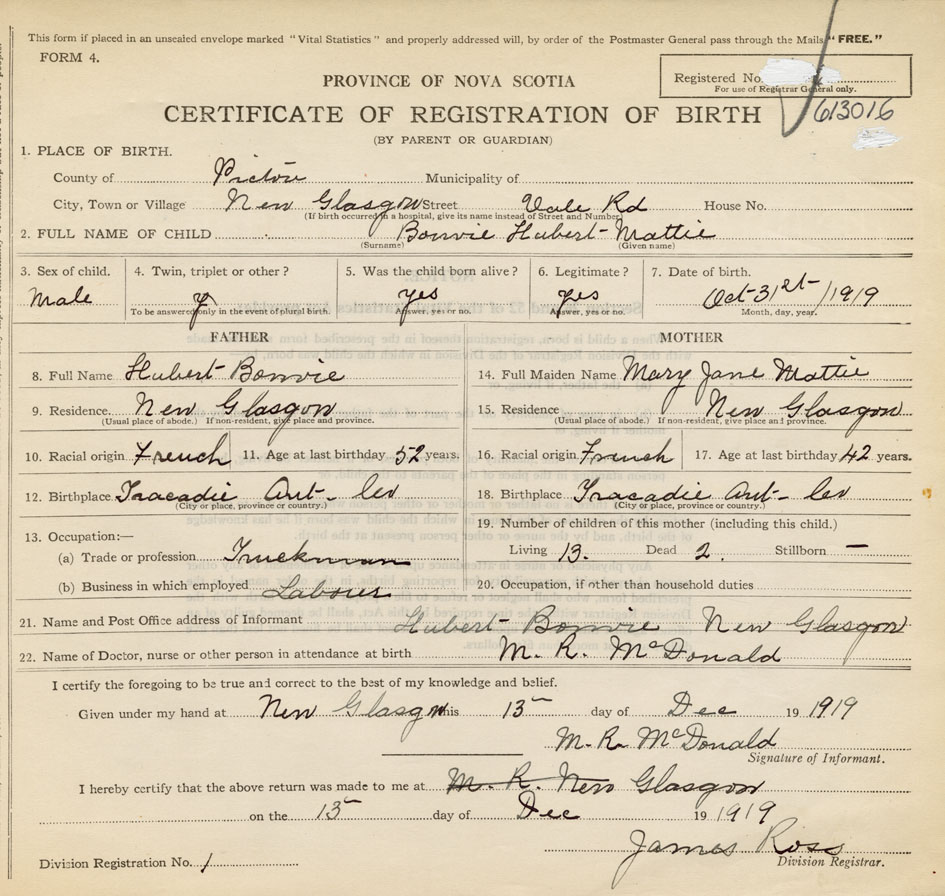 This form if placed in an unsealed envelope marked "Vital Statistics" and properly addressed will, by order of the Postmaster General pass through the Mails "FREE."
FORM 4.
PROVINCE OF NOVA SCOTIA
Registered No.
For use of Registrar General only.
CERTIFICATE OF REGISTRATION OF BIRTH
613016
(BY PARENT OR GUARDIAN)
1. PLACE OF BIRTH.
County of Pictou Municipality of
City, Town or Village New Glasgow Street Vale Rd House No.
(If birth occurred in a hospital, give its name instead of Street and Number)
2. FULL NAME OF CHILD Bonvie Hubert Mattie
(Surname) (Given name)
3. Sex of child. 4. Twin, triplet or other? 5. Was the child born alive? 6. Legitimate? 7. Date of birth.
Male yes yes Oct 31st/1919
To be answered only in the event of plural birth. Answer, yes or no. Answer, yes or no. Month, day, year.
FATHER MOTHER
8. Full Name Hubert Bonvie 14. Full Maiden Name Mary Jane Mattie
9. Residence New Glasgow 15. Residence New Glasgow
(Usual place of abode.) If non-resident, give place and province. (Usual place of abode.) If non-resident, give place and province.
10. Racial origin French 11. Age at last birthday 52 years. 16. Racial origin French 17. Age at last birthday 42 years.
12. Birthplace Tracadie Ant- Co 18. Birthplace Tracadie Ant- Co
(City or place, province or country.) (City or place, province or country.)
13. Occupation:— 19. Number of children of this mother (including this child.)
(a) Trade or profession Truckman Living 13. Dead 2. Stillborn —
(b) Business in which employed Labour 20. Occupation, if other than household duties
21. Name and Post Office address of Informant Hubert Bonvie New Glasgow
22. Name of Doctor, nurse or other person in attendance at birth M. R. McDonald
I certify the foregoing to be true and correct to the best of my knowledge and belief.
Given under my hand at New Glasgow this 15 day of Dec 19 1919
M. R. McDonald
Signature of Informant.
I hereby certify that the above return was made to me at M. R. New Glasgow
on the 15 day of Dec 19 1919
James Ross
Division Registration No. 1 Division Registrar.